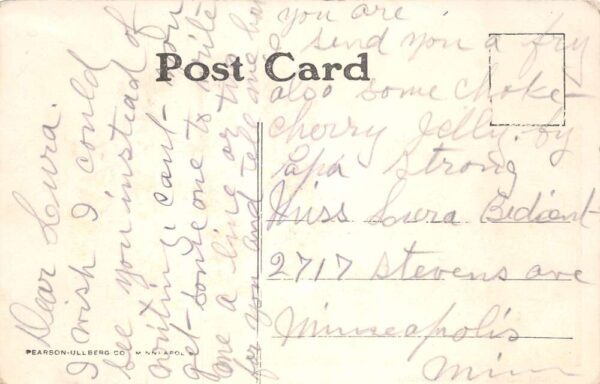 Post Card
Dear Lura.
I wish I could
see you instead of
writing. cant you
get someone to write
me a line or two
for you and tell me how
you are.
I send you a fry
also some choke-
cherry Jelly. by
Papa Strong
Miss Lura Bedient
2717 Stevens ave
Minneapolis
Minn
PEARSON-ULLBERG CO. MINNEAPOLIS